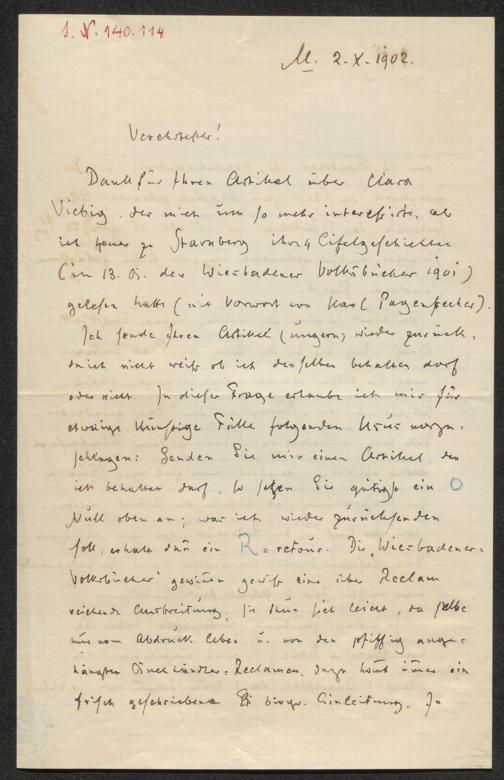 I. N. 140.114
M. 2. X. 1902.
Verehrtester!
Dank für Ihren Artikel über Clara
Viebig, der mich um so mehr interessirte, als
ich heuer zu Starnberg ihre 4 Eifelgeschichten
(im 13. der Wiesbadener Volksbücher 1901)
gelesen hatte (mit Vorwort von Karl Pagenstecher).
Ich sende Ihren Artikel (ungern) wieder zurück,
da ich nicht weiß ob ich denselben behalten darf
oder nicht. In dieser Frage erlaube ich mir für
etwaige künftige Fälle folgenden Usus vorzu-
schlagen: Senden Sie mir einen Artikel, den
ich behalten darf, so setzen Sie gütigst ein O
Null oben an; was ich wieder zurücksenden
soll, erhält dann ein R = retour. Die „Wiesbadener-
Volksbücher" gewinnen gewiß eine über Reclam
reichende Ausbreitung; sie thun sich leicht, da selbe
nur vom Abdruck leben u. von den pfiffig ange-
hängten Buchhändler-Reclamen, dazu kommt immer ein
frisch geschriebene biogr. Einleitung. In